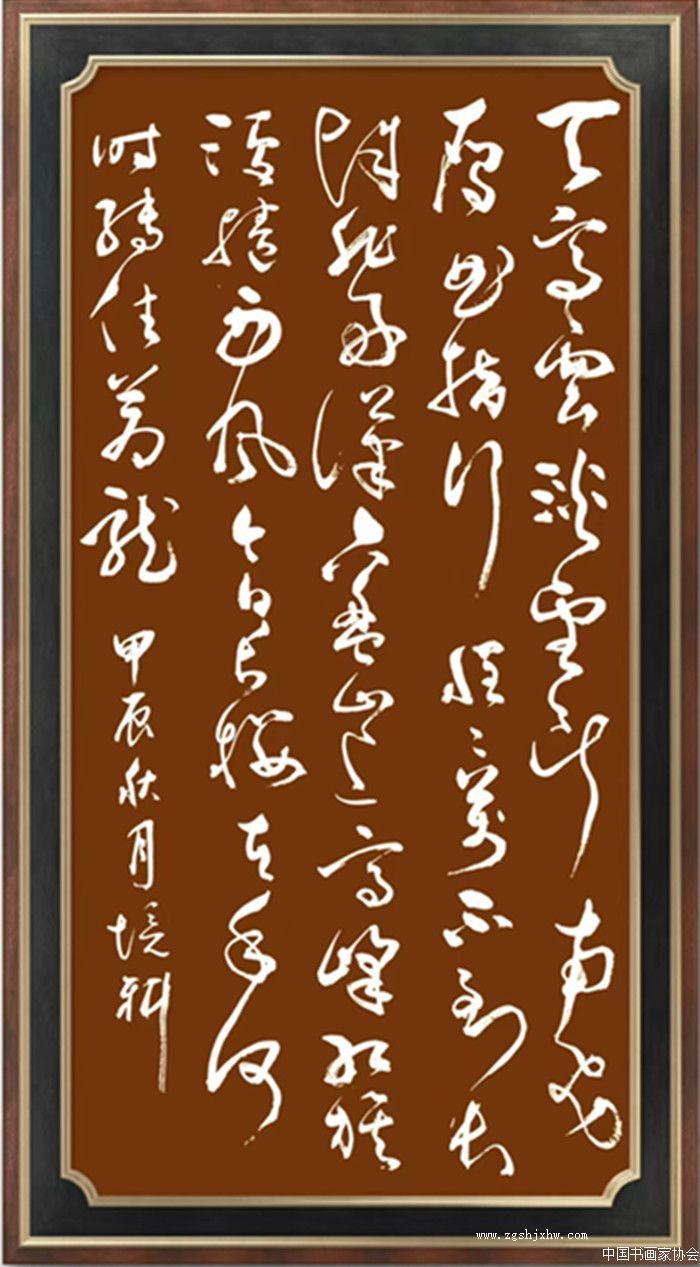 天高雲淡望断南飛
雁屈指行程二萬不到长
城非好漢六盘山上高峰红旗
漫捲西风今日长缨在手何
时缚住苍龙 甲辰秋月
www.zgshjxhw.com
中国书画家协会